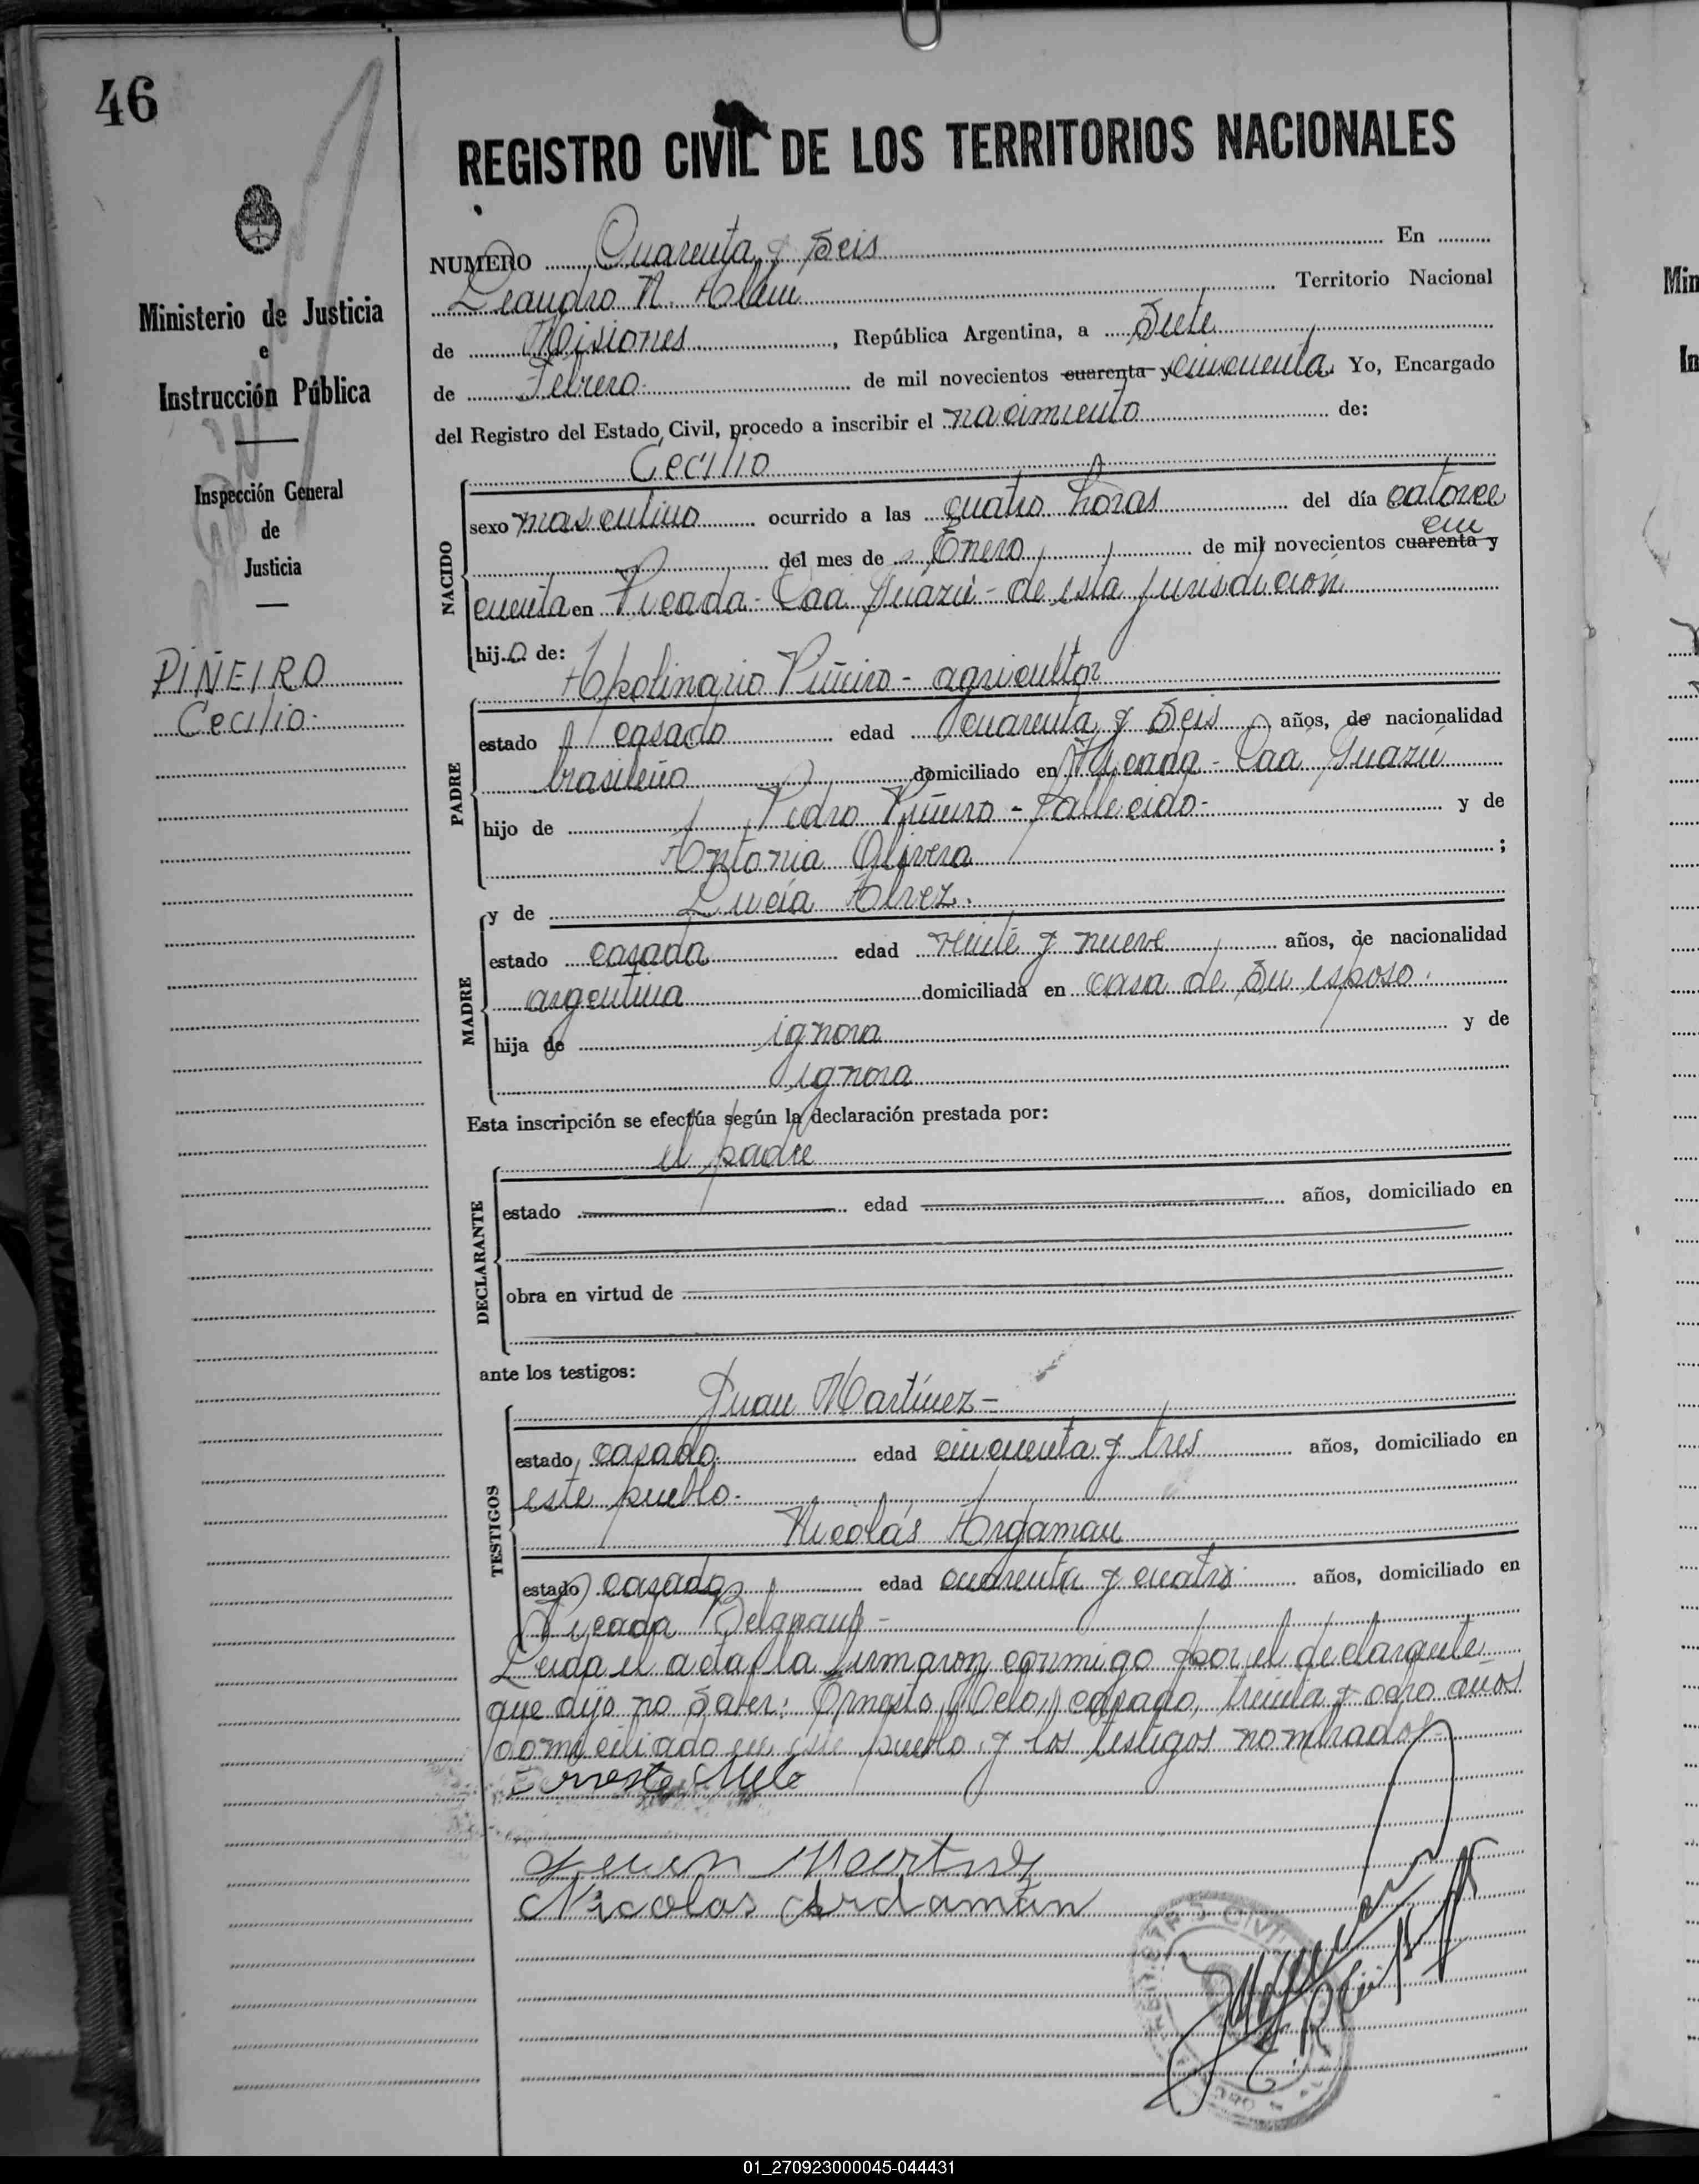 46
REGISTRO CIVIL DE LOS TERRITORIOS NACIONALES
Ministerio de Justicia
e
Instrucción Pública
Inspección General
de
Justicia
PIÑEIRO
Cecilio.
NUMERO Cuarenta y Seis En
Leandro N. Além Territorio Nacional
de Misiones, República Argentina, a Siete
de Febrero. de mil novecientos cuarenta y cincuenta. Yo, Encargado
del Registro del Estado Civil, procedo a inscribir el nacimiento de:
Cecilio
NACIDO
sexo masculino ocurrido a las cuatro horas del día catorce
del mes de Enero de mil novecientos cuarenta y cin
cuenta en Picada - Caá Guazú - de esta jurisdicion
hijo de:
Apolinario Piñeiro - agricultor
PADRE
estado casado edad cuarenta y Seis años, de nacionalidad
brasileño domiciliado en Picada - Caá Guazú
hijo de Pedro Piñeiro - fallecido - y de
Antonia Olivera ;
y de Lucía Alvez.
MADRE
estado casada edad veinte y nueve años, de nacionalidad
argentina domiciliada en casa de su esposo.
hija de ignora y de
ignora
Esta inscripción se efectúa según la declaración prestada por:
el padre
DECLARANTE
estado edad años, domiciliado en
obra en virtud de
ante los testigos:
Juan Martínez -
TESTIGOS
estado casado. edad cincuenta y tres años, domiciliado en
este pueblo.
Nicolás Ardaman
estado casado edad cuarenta y cuatro años, domiciliado en
Picada Belgrano -
Leida el acta, la firmaron conmigo por el declarante
que dijo no saber: Ernesto Melo, casado, treinta y ocho años
domiciliado en este pueblo, y los testigos nombrados
Ernesto Melo
Juan Martinez
Nicolas Ardamán
REGISTRO CIVIL
01_270923000045-044431